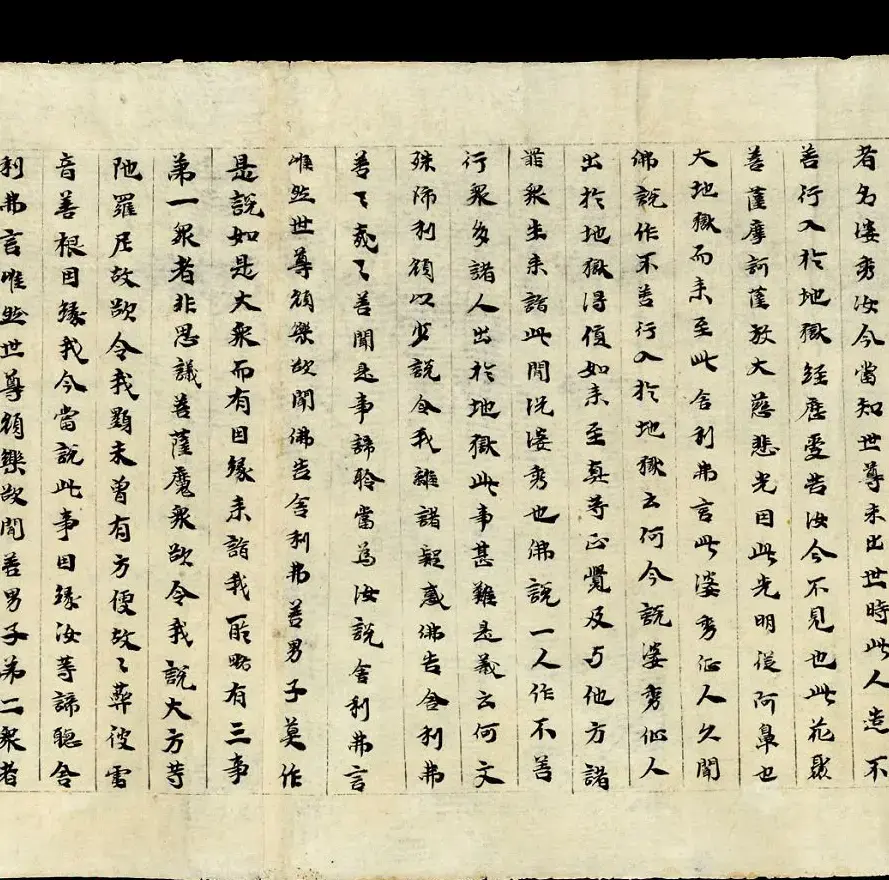 者名婆秀汝今當知世尊未出世時此人造不
善行入於地獄經歷受苦汝今不見也此花聚
菩薩摩訶薩放大慈悲光因此光明從阿鼻也
大地獄而來至此舍利弗言此婆秀仙人久聞
佛說作不善行入於地獄云何今說婆秀仙人
出於地獄得值如來至真等正覺及与他方諸
罪眾生來詣此間況婆秀也佛說一人作不善
行眾多諸人出於地獄此事甚難是義云何文
殊師利願以少說令我離諸疑惑佛告舍利弗
善〻哉〻善聞是事諦聆當為汝說舍利弗言
唯然世尊願樂欲聞佛告舍利弗善男子莫作
是說如是大眾而有因緣來詣我所略有三事
第一眾者非思議菩薩魔眾欲令我說大方等
陁羅尼故欲令我顯未曾有方便故〻華彼雷
音善根因緣我今當說此事因緣汝等諦聽舍
利弗言唯然世尊願樂欲聞善男子第二眾者